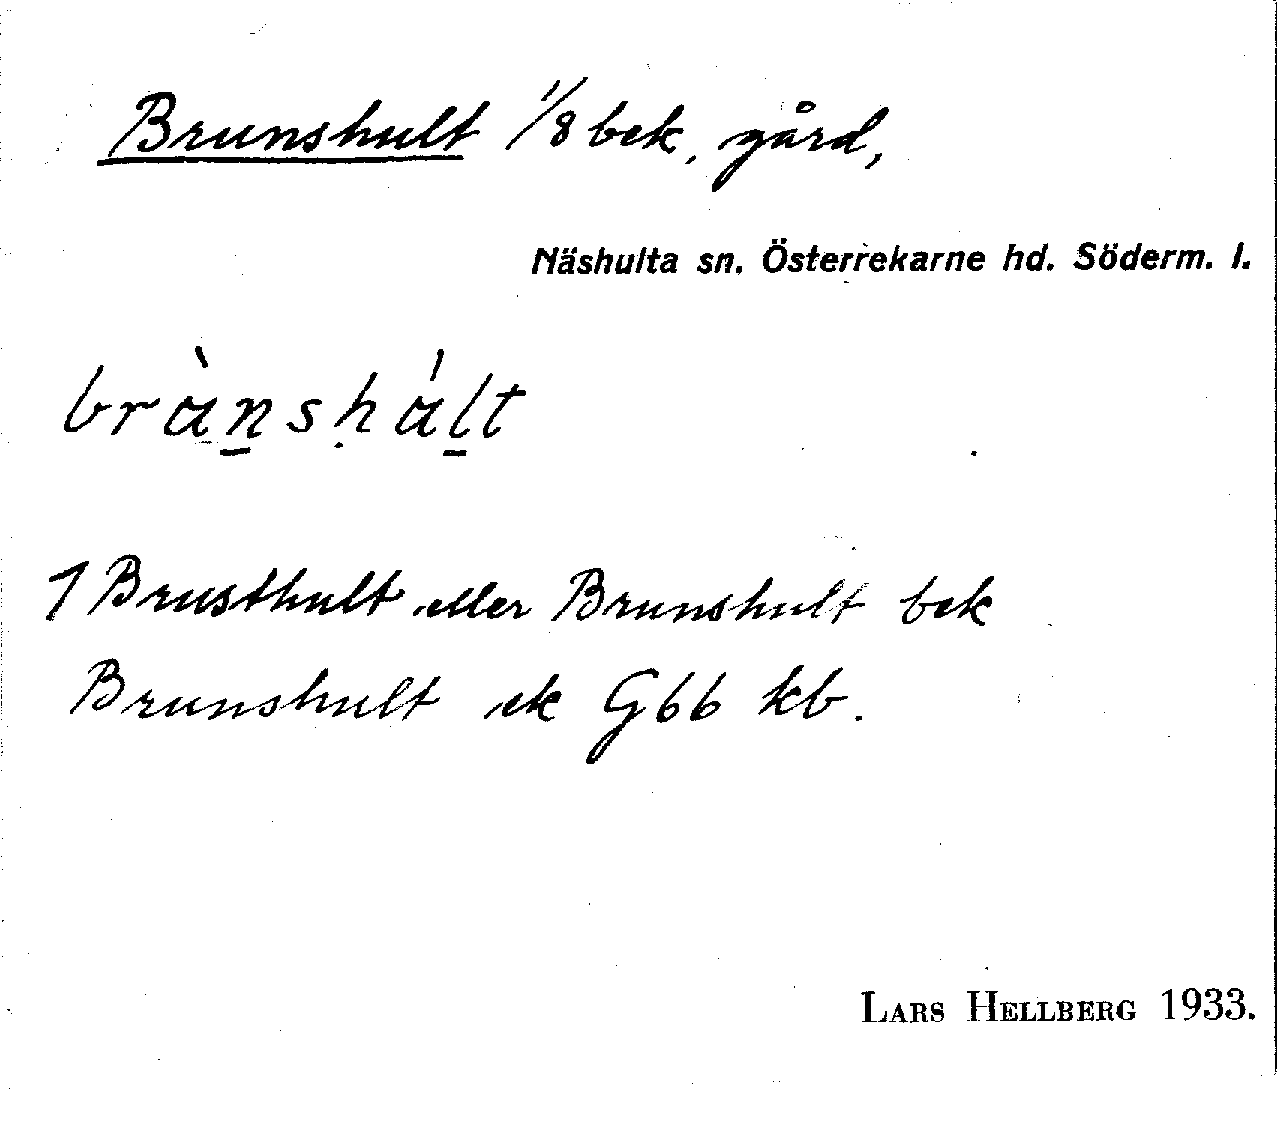 Brunshult 1/8 bek, gård,
Näshulta sn. Österrekarne hd. Söderm. l.
brànshált
1 Brusthult eller Brunshult bek
Brunshult ek G66 kb.
LARS HELLBERG 1933.